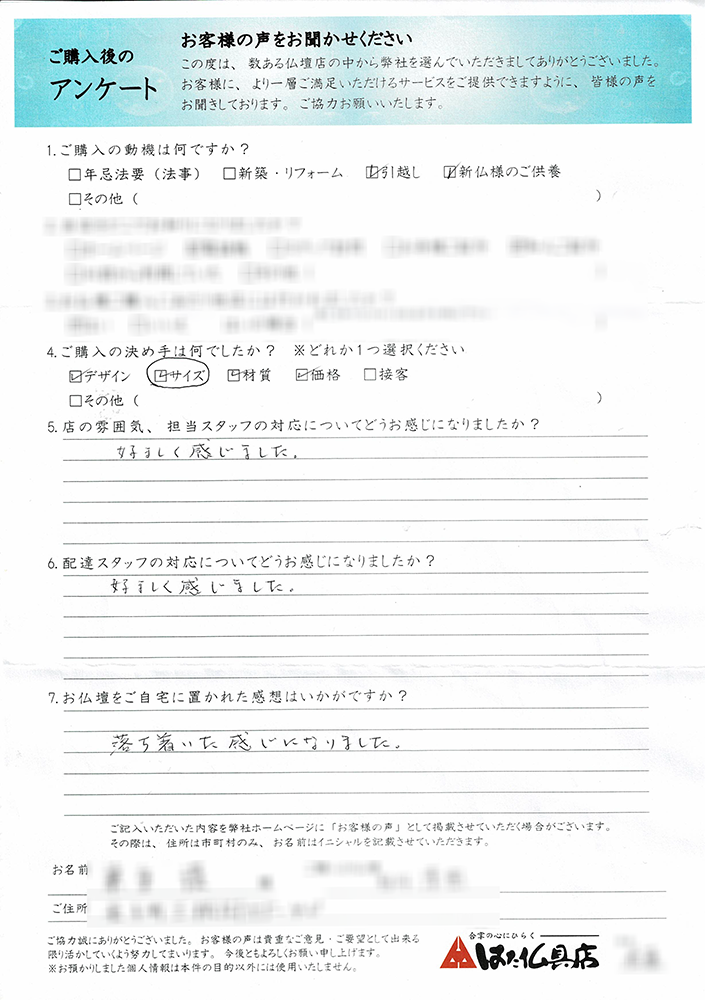 ご購入後の
アンケート
お客様の声をお聞かせください
この度は、数ある仏壇店の中から弊社を選んでいただきましてありがとうございました。
お客様に、より一層ご満足いただけるサービスをご提供できますように、皆様の声を
お聞きしております。ご協力お願いいたします。
1.ご購入の動機は何ですか?
□年忌法要(法事) □新築・リフォーム ☑引越し ☑新仏様のご供養
□その他( )
4.ご購入の決め手は何でしたか? ※どれか1つ選択ください
☑デザイン ☑サイズ ☑材質 ☑価格 □接客
□その他( )
5.店の雰囲気、担当スタッフの対応についてどうお感じになりましたか?
好ましく感じました。
6.配達スタッフの対応についてどうお感じになりましたか?
好ましく感じました。
7.お仏壇をご自宅に置かれた感想はいかがですか?
落ち着いた感じになりました。
ご記入いただいた内容を弊社ホームページに「お客様の声」として掲載させていただく場合がございます。
その際は、住所は市町村のみ、お名前はイニシャルを記載させていただきます。
お名前
ご住所
ご協力誠にありがとうございました。お客様の声は貴重なご意見・ご要望として出来る
限り活かしていくよう努力してまいります。今後ともよろしくお願い申し上げます。
※お預かりしました個人情報は本件の目的以外には使用いたしません。
合掌の心にひらく
はた仏具店